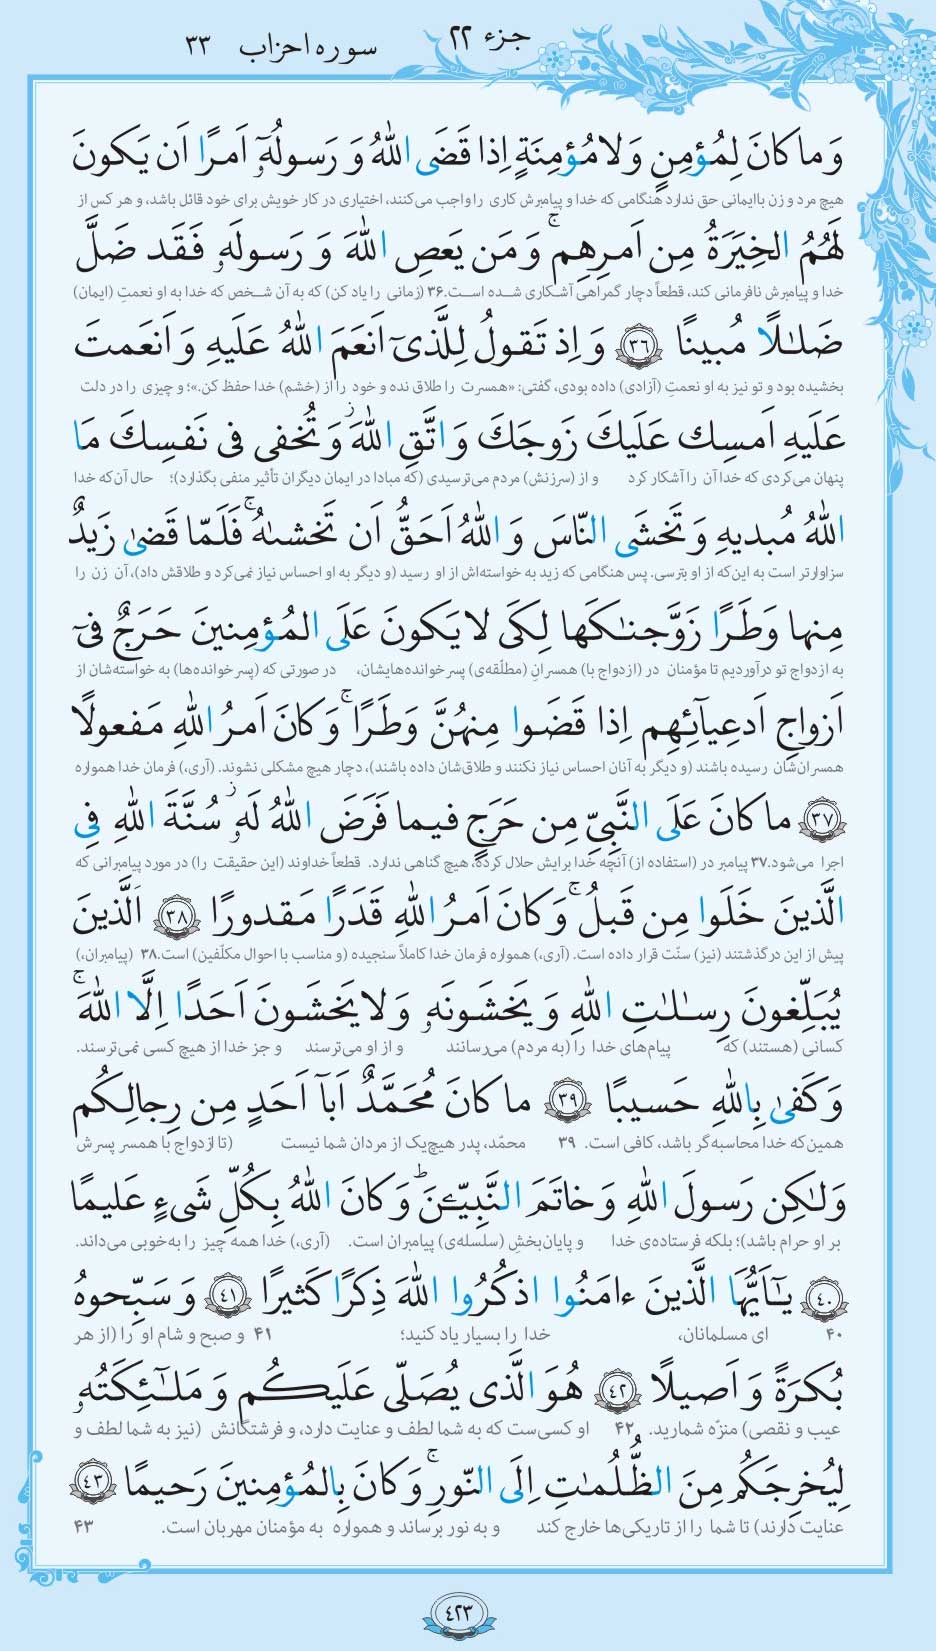 جزء ۲۲
سوره احزاب ۳۳
وَ ما كانَ لِمُؤمِنٍ وَ لا مُؤمِنَةٍ اِذا قَضَى اللهُ وَ رَسولُهٗٓ اَمرًا اَن يَكونَ
هیچ مرد و زن باایمانی حق ندارد هنگامی که خدا و پیامبرش کاری را واجب می‌کنند، اختیاری در کار خویش برای خود قائل باشد، و هر کس از
لَهُمُ الخِيَرَةُ مِن اَمرِهِم ۚ وَ مَن يَعصِ اللهَ وَ رَسولَهٗ فَقَد ضَلَّ
خدا و پیامبرش نافرمانی کند، قطعاً دچار گمراهی آشکاری شده است.۳۶ (زمانی را یاد کن) که به آن شخص که خدا به او نعمتِ (ایمان)
ضَلـٰلًا مُبينًا ۳۶ وَ اِذ تَقولُ لِلَّذىٓ اَنعَمَ اللهُ عَلَيهِ وَ اَنعَمتَ
بخشیده بود و تو نیز به او نعمتِ (آزادی) داده بودی، گفتی: «همسرت را طلاق نده و خود را از (خشم) خدا حفظ کن.»؛ و چیزی را در دلت
عَلَيهِ اَمسِك عَلَيكَ زَوجَكَ وَ اتَّقِ اللهَ ۖ وَ تُخفى فى نَفسِكَ مَا
پنهان می‌کردی که خدا آن را آشکار کرد و از (سرزنش) مردم می‌ترسیدی (که مبادا در ایمان دیگران تأثیر منفی بگذارد)؛ حال آن‌که خدا
اللهُ مُبديهِ وَ تَخشَى النّاسَ وَ اللهُ اَحَقُّ اَن تَخشىٰهُ ۚ فَلَمّا قَضىٰ زَيدٌ
سزاوارتر است به این‌که از او بترسی. پس هنگامی که زید به خواسته‌اش از او رسید (و دیگر به او احساس نیاز نمی‌کرد و طلاقش داد)، آن زن را
مِنها وَطَرًا زَوَّجنـٰكَها لِكَى لا يَكونَ عَلَى المُؤمِنينَ حَرَجٌ فىٓ
به ازدواج تو درآوردیم تا مؤمنان در (ازدواج با) همسرانِ (مطلّقه‌ی) پسرخوانده‌هایشان، در صورتی که (پسرخوانده‌ها) به خواسته‌شان از
اَزواجِ اَدعِيآئِهِم اِذا قَضَوا مِنهُنَّ وَطَرًا ۚ وَ كانَ اَمرُ اللهِ مَفعولًا
همسران‌شان رسیده باشند (و دیگر به آنان احساس نیاز نکنند و طلاق‌شان داده باشند)، دچار هیچ مشکلی نشوند. (آری،) فرمان خدا همواره
۳۷ ما كانَ عَلَى النَّبِىِّ مِن حَرَجٍ فيما فَرَضَ اللهُ لَهٗ ۖ سُنَّةَ اللهِ فِى
اجرا می‌شود.۳۷ پیامبر در (استفاده از) آنچه خدا برایش حلال کرده، هیچ گناهی ندارد. قطعاً خداوند (این حقیقت را) در مورد پیامبرانی که
الَّذينَ خَلَوا مِن قَبلُ ۚ وَ كانَ اَمرُ اللهِ قَدَرًا مَقدورًا ۳۸ اَلَّذينَ
پیش از این درگذشتند (نیز) سنّت قرار داده است. (آری،) همواره فرمان خدا کاملاً سنجیده (و مناسب با احوال مکلّفین) است.۳۸ (پیامبران،)
يُبَلِّغونَ رِسـٰلـٰتِ اللهِ وَ يَخشَونَهٗ وَ لا يَخشَونَ اَحَدًا اِلَّا اللهَ ۗ
کسانی (هستند) که پیام‌های خدا را (به مردم) می‌رسانند و از او می‌ترسند و جز خدا از هیچ کسی نمی‌ترسند.
وَ كَفىٰ بِاللهِ حَسيبًا ۳۹ ما كانَ مُحَمَّدٌ اَبآ اَحَدٍ مِن رِجالِكُم
همین‌که خدا محاسبه‌گر باشد، کافی است. ۳۹ محمّد، پدر هیچ‌یک از مردان شما نیست (تا ازدواج با همسر پسرش
وَ لـٰكِن رَسولَ اللهِ وَ خاتَمَ النَّبِيّـۧنَ ۗ وَ كانَ اللهُ بِكُلِّ شَىءٍ عَليمًا
بر او حرام باشد)؛ بلکه فرستاده‌ی خدا و پایان‌بخشِ (سلسله‌ی) پیامبران است. (آری،) خدا همه چیز را به‌خوبی می‌داند.
۴۰ يـٰٓاَيُّهَا الَّذينَ ءامَنُوا اذكُرُوا اللهَ ذِكرًا كَثيرًا ۴۱ وَ سَبِّحوهُ
۴۰ ای مسلمانان، خدا را بسیار یاد کنید؛ ۴۱ و صبح و شام او را (از هر
بُكرَةً وَ اَصيلًا ۴۲ هُوَ الَّذى يُصَلّى عَلَيكُم وَ مَلـٰٓئِكَتُهٗ
عیب و نقصی) منزّه شمارید. ۴۲ او کسی‌ست که به شما لطف و عنایت دارد، و فرشتگانش (نیز به شما لطف و
لِيُخرِجَكُم مِنَ الظُّلُمـٰتِ اِلَى النّورِ ۚ وَ كانَ بِالمُؤمِنينَ رَحيمًا ۴۳
عنایت دارند) تا شما را از تاریکی‌ها خارج کند و به نور برساند و همواره به مؤمنان مهربان است. ۴۳
۴۲۳